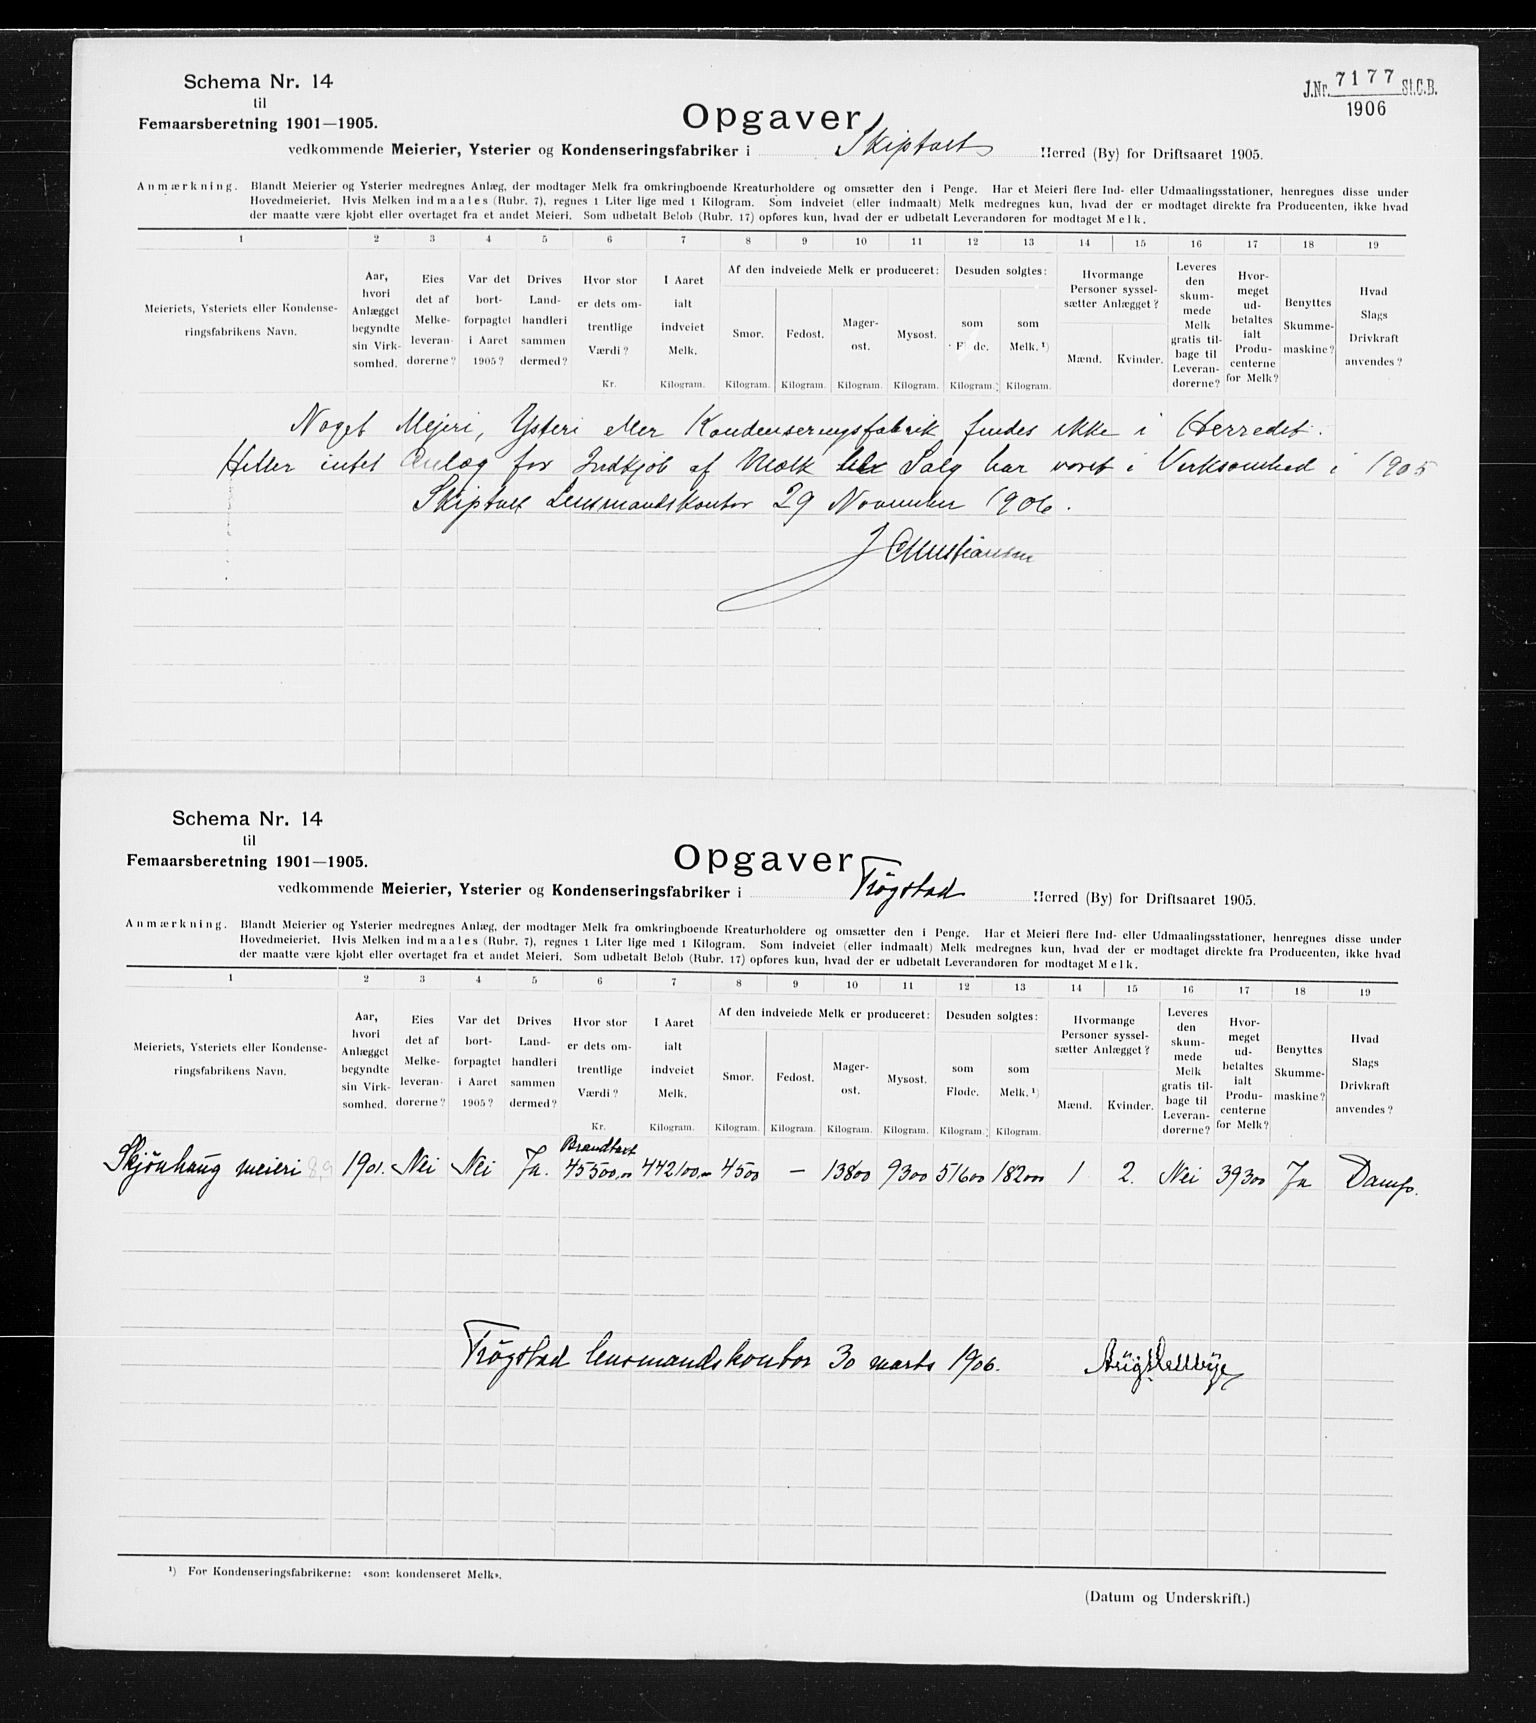 Schema Nr. 14
til
Femaarsberetning 1901—1905.
J.Nr. 7177 St.C.B.
1906
Opgaver
vedkommende Meierier, Ysterier og Kondenseringsfabriker i Skiptvet Herred (By) for Driftsaaret 1905.
Anmærkning. Blandt Meierier og Ysterier medregnes Anlæg, der modtager Melk fra omkringboende Kreaturholdere og omsætter den i Penge. Har et Meieri flere Ind- eller Udmaalingsstationer, henregnes disse under
Hovedmeieriet. Hvis Melken indmaales (Rubr. 7), regnes 1 Liter lige med 1 Kilogram. Som indveiet (eller indmaalt) Melk medregnes kun, hvad der er modtaget direkte fra Producenten, ikke hvad
der maatte være kjøbt eller overtaget fra et andet Meieri. Som udbetalt Beløb (Rubr. 17) opføres kun, hvad der er udbetalt Leverandøren for modtaget Melk.
1 2 3 4 5 6 7 8 9 10 11 12 13 14 15 16 17 18 19
Meieriets, Ysteriets eller Kondense-
ringsfabrikens Navn.
Aar,
hvori
Anlægget
begyndte
sin Virk-
somhed.
Eies
det af
Melke-
leveran-
dørerne?
Var det
bort-
forpagtet
i Aaret
1905?
Drives
Land-
handleri
sammen
dermed?
Hvor stor
er dets om-
trentlige
Værdi?
Kr.
I Aaret
ialt
indveiet
Melk.
Kilogram.
Af den indveiede Melk er produceret:
Smør.
Kilogram.
Fedost.
Kilogram.
Mager-
ost.
Kilogram.
Mysost.
Kilogram.
Desuden solgtes:
som
Fløde.
Kilogram.
som
Melk.¹)
Kilogram.
Hvormange
Personer syssel-
sætter Anlægget?
Mænd.
Kvinder.
Leveres
den
skum-
mede
Melk
gratis til-
bage til
Leveran-
dørerne?
Hvor-
meget
ud-
betaltes
ialt
Produ-
centerne
for Melk?
Benyttes
Skumme-
maskine?
Hvad
Slags
Drivkraft
anvendes?
Noget Mejeri, Ysteri eller Kondenseringsfabrik findes ikke i Herredet.
Heller intet Anlæg for Indkjøb af Mælk Salg har været i Virksomhed i 1905
Skiptvet Lensmandskontor 29 November 1906.
J Christiansen
Schema Nr. 14
til
Femaarsberetning 1901—1905.
Opgaver
vedkommende Meierier, Ysterier og Kondenseringsfabriker i Trøgstad Herred (By) for Driftsaaret 1905.
Anmærkning. Blandt Meierier og Ysterier medregnes Anlæg, der modtager Melk fra omkringboende Kreaturholdere og omsætter den i Penge. Har et Meieri flere Ind- eller Udmaalingsstationer, henregnes disse under
Hovedmeieriet. Hvis Melken indmaales (Rubr. 7), regnes 1 Liter lige med 1 Kilogram. Som indveiet (eller indmaalt) Melk medregnes kun, hvad der er modtaget direkte fra Producenten, ikke hvad
der maatte være kjøbt eller overtaget fra et andet Meieri. Som udbetalt Beløb (Rubr. 17) opføres kun, hvad der er udbetalt Leverandøren for modtaget Melk.
1 2 3 4 5 6 7 8 9 10 11 12 13 14 15 16 17 18 19
Meieriets, Ysteriets eller Kondense-
ringsfabrikens Navn.
Aar,
hvori
Anlægget
begyndte
sin Virk-
somhed.
Eies
det af
Melke-
leveran-
dørerne?
Var det
bort-
forpagtet
i Aaret
1905?
Drives
Land-
handleri
sammen
dermed?
Hvor stor
er dets om-
trentlige
Værdi?
Kr.
I Aaret
ialt
indveiet
Melk.
Kilogram.
Af den indveiede Melk er produceret:
Smør.
Kilogram.
Fedost.
Kilogram.
Mager-
ost.
Kilogram.
Mysost.
Kilogram.
Desuden solgtes:
som
Fløde.
Kilogram.
som
Melk.¹)
Kilogram.
Hvormange
Personer syssel-
sætter Anlægget?
Mænd.
Kvinder.
Leveres
den
skum-
mede
Melk
gratis til-
bage til
Leveran-
dørerne?
Hvor-
meget
ud-
betaltes
ialt
Produ-
centerne
for Melk?
Benyttes
Skumme-
maskine?
Hvad
Slags
Drivkraft
anvendes?
Brandtaxt
Skjønhaug meieri 1901. Nei Nei Ja. 45500,00 442100,- 4500 — 13800 9300 51600 182000 1 2. Nei 39300 Ja Damp.
Trøgstad lensmandskontor 30 marts 1906.
¹) For Kondenseringsfabrikerne: «som kondenseret Melk».
(Datum og Underskrift.)